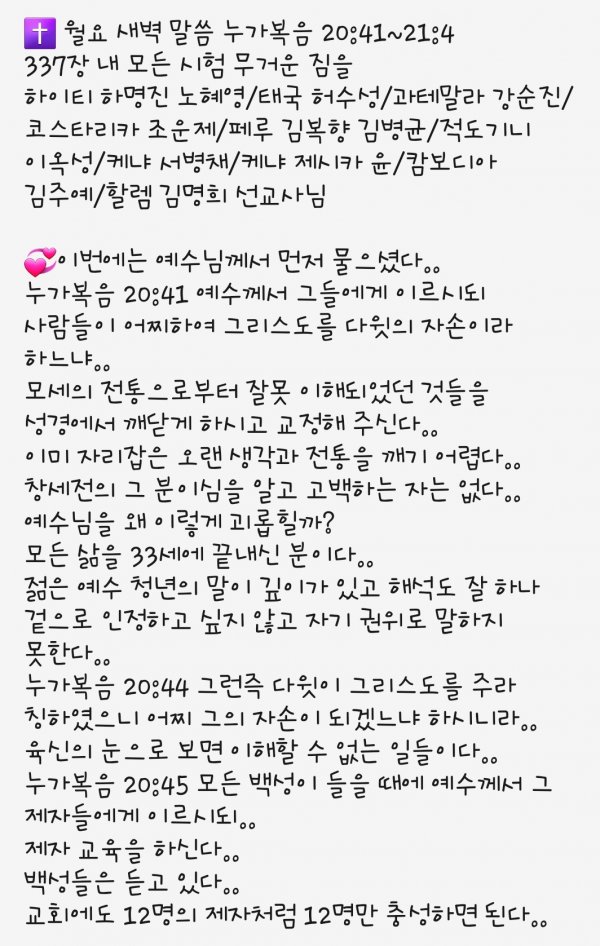 ✝️ 월요 새벽 말씀 누가복음 20:41~21:4
337장 내 모든 시험 무거운 짐을
하이티 하명진 노혜영/태국 허수성/과테말라 강순진/
코스타리카 조운제/페루 김복향 김병균/적도기니
이옥성/케냐 서병채/케냐 제시카 윤/캄보디아
김주예/할렘 김명희 선교사님
💞이번에는 예수님께서 먼저 물으셨다。。
누가복음 20:41 예수께서 그들에게 이르시되
사람들이 어찌하여 그리스도를 다윗의 자손이라
하느냐。。
모세의 전통으로부터 잘못 이해되었던 것들을
성경에서 깨닫게 하시고 교정해 주신다。。
이미 자리잡은 오랜 생각과 전통을 깨기 어렵다。。
창세전의 그 분이심을 알고 고백하는 자는 없다。。
예수님을 왜 이렇게 괴롭힐까?
모든 삶을 33세에 끝내신 분이다。。
젊은 예수 청년의 말이 깊이가 있고 해석도 잘 하나
겉으로 인정하고 싶지 않고 자기 권위로 말하지
못한다。。
누가복음 20:44 그런즉 다윗이 그리스도를 주라
칭하였으니 어찌 그의 자손이 되겠느냐 하시니라。。
육신의 눈으로 보면 이해할 수 없는 일들이다。。
누가복음 20:45 모든 백성이 들을 때에 예수께서 그
제자들에게 이르시되。。
제자 교육을 하신다。。
백성들은 듣고 있다。。
교회에도 12명의 제자처럼 12명만 충성하면 된다。。